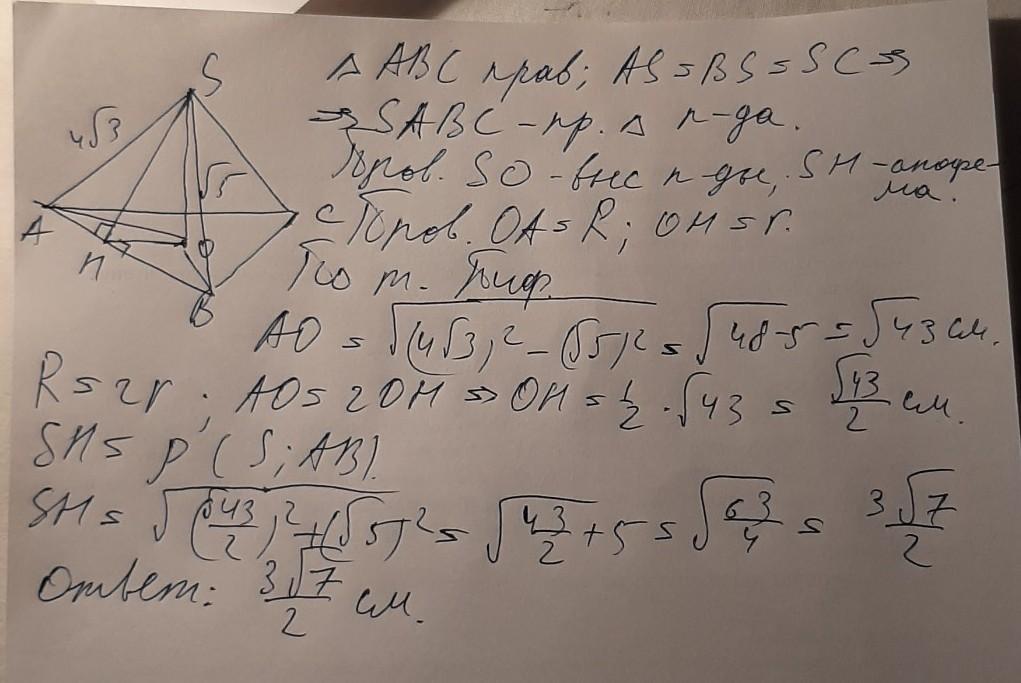 S
4√3
√5
A
C
H
O
B
△ ABC прав; AS = BS = SC ⇒
⇒ SABC - пр. △ п-да.
Пров. SO - выс п-ды, SH - апофе-
ма.
Пров. OA = R; OH = r.
По т. Пиф.
AO = √((4√3)² - (√5)²) = √(48-5) = √43 см.
R = 2r; AO = 2OH ⇒ OH = 1/2 · √43 = √43/2 см.
SH = ρ(S; AB).
SH = √((√43/2)² + (√5)²) = √(43/2 + 5) = √(63/4) = 3√7/2
Ответ: 3√7/2 см.